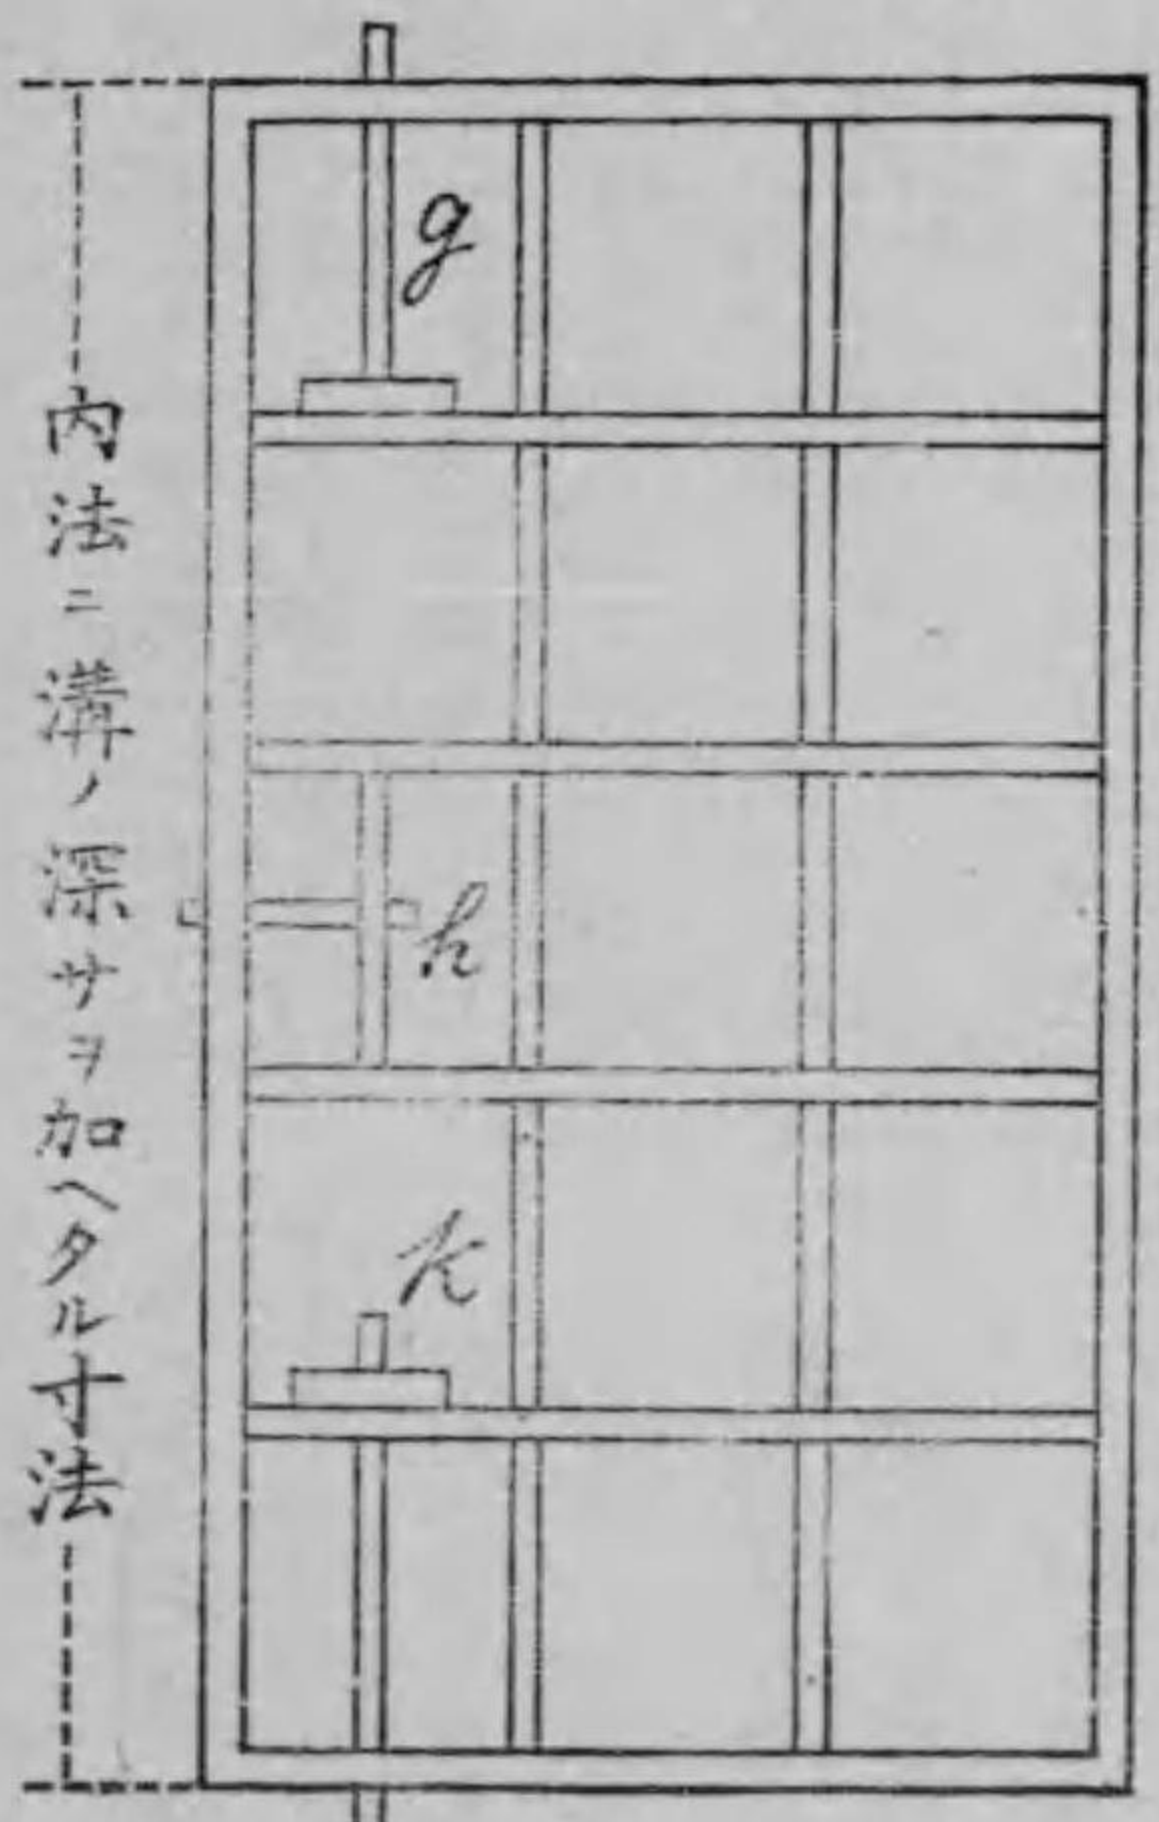 内法ニ溝ノ深サヲ加ヘタル寸法
g
h
k